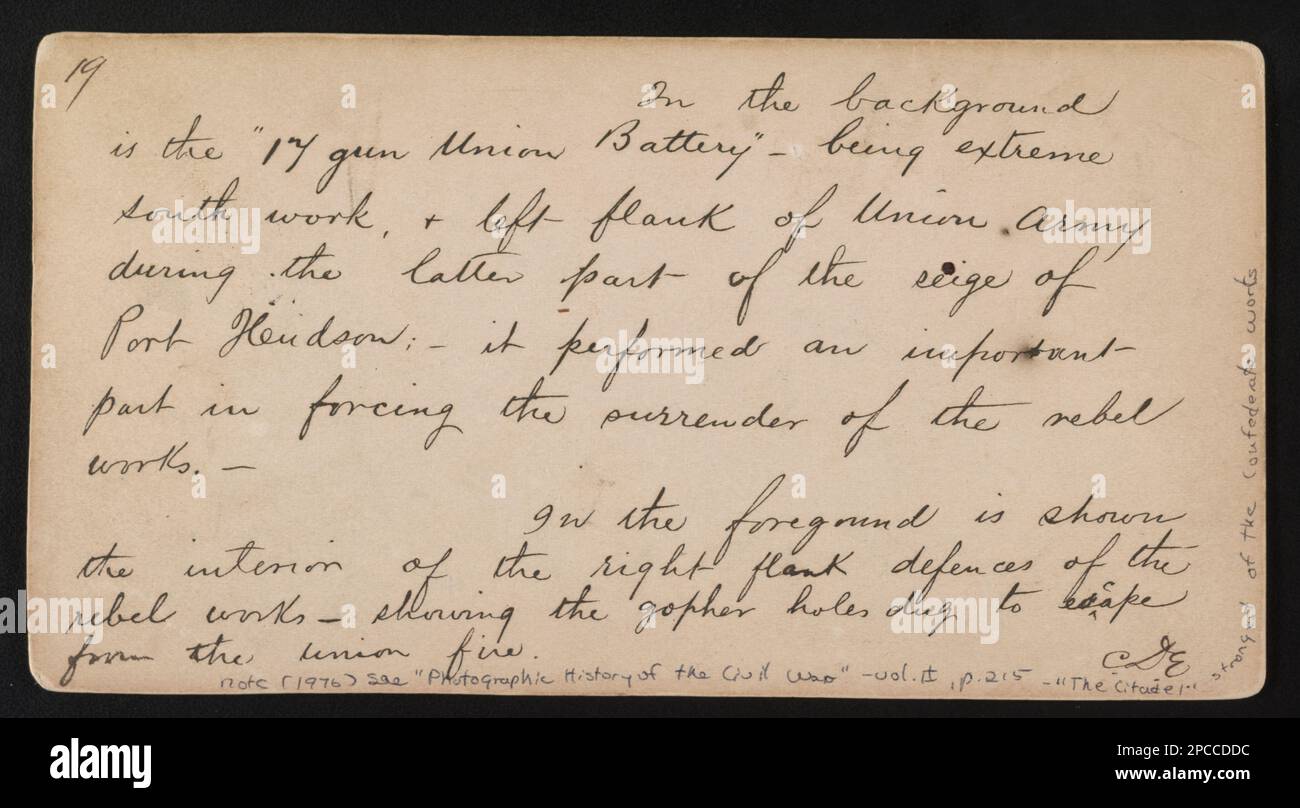 19
In the background
is the "17 gun Union Battery" - being extreme
south work, + left flank of Union Army
during the latter part of the seige of
Port Hudson: - it performed an important
part in forcing the surrender of the rebel
works. -
In the foregound is shown
the interior of the right flank defences of the
rebel works - showing the gopher holes dug to escape
from the union fire.
CDE
note (1976) see "Photographic History of the Civil War" - vol. II, p. 215 - "The Citadel"
strongest of the Confederate works
alamy
Image ID: 2PCCDDC
www.alamy.com